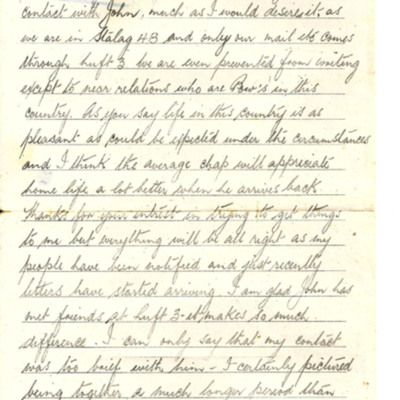 contact with John, much as I would desire it; as
we are in Stalag 4B and only our mail etc comes
through Luft 3. We are even prevented from writing
except to near relations who are Pow's in this
country. As you say life in this country is as
pleasant as could be expected under the circumstances
and I think the average chap will appreciate
home life a lot better when he arrives back.
Thanks for your interest in trying to get things
to me but everything will be all right as my
people have been notified and just recently
letters have started arriving. I am glad John has
met friends at Luft 3 - it makes so much
difference. I can only say that my contact
was too brief with him - I certainly pictured
being together a much longer period than